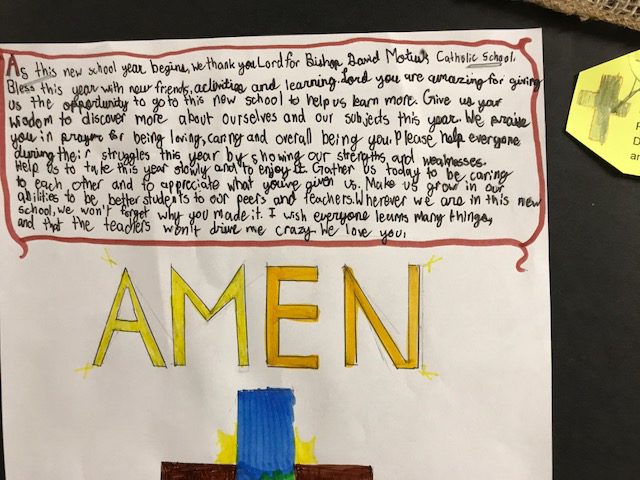 As this new school year begins, we thank you Lord for Bishop David Motiuk Catholic School.
Bless this year with new friends, activities and learning. Lord you are amazing for giving
us the opportunity to go to this new school to help us learn more. Give us your
wisdom to discover more about ourselves and our subjects this year. We praise
you in prayers for being loving, caring and overall being you. Please help everyone
during their struggles this year by showing our strengths and weaknesses.
Help us to take this year slowly and to enjoy it. Gather us today to be caring
to each other and to appreciate what you've given us. Make us grow in our
abilities to be better students to our peers and teachers. Wherever we are in this new
school, we won't forget why you made it. I wish everyone learns many things,
and that the teachers won't drive me crazy. We love you.
AMEN